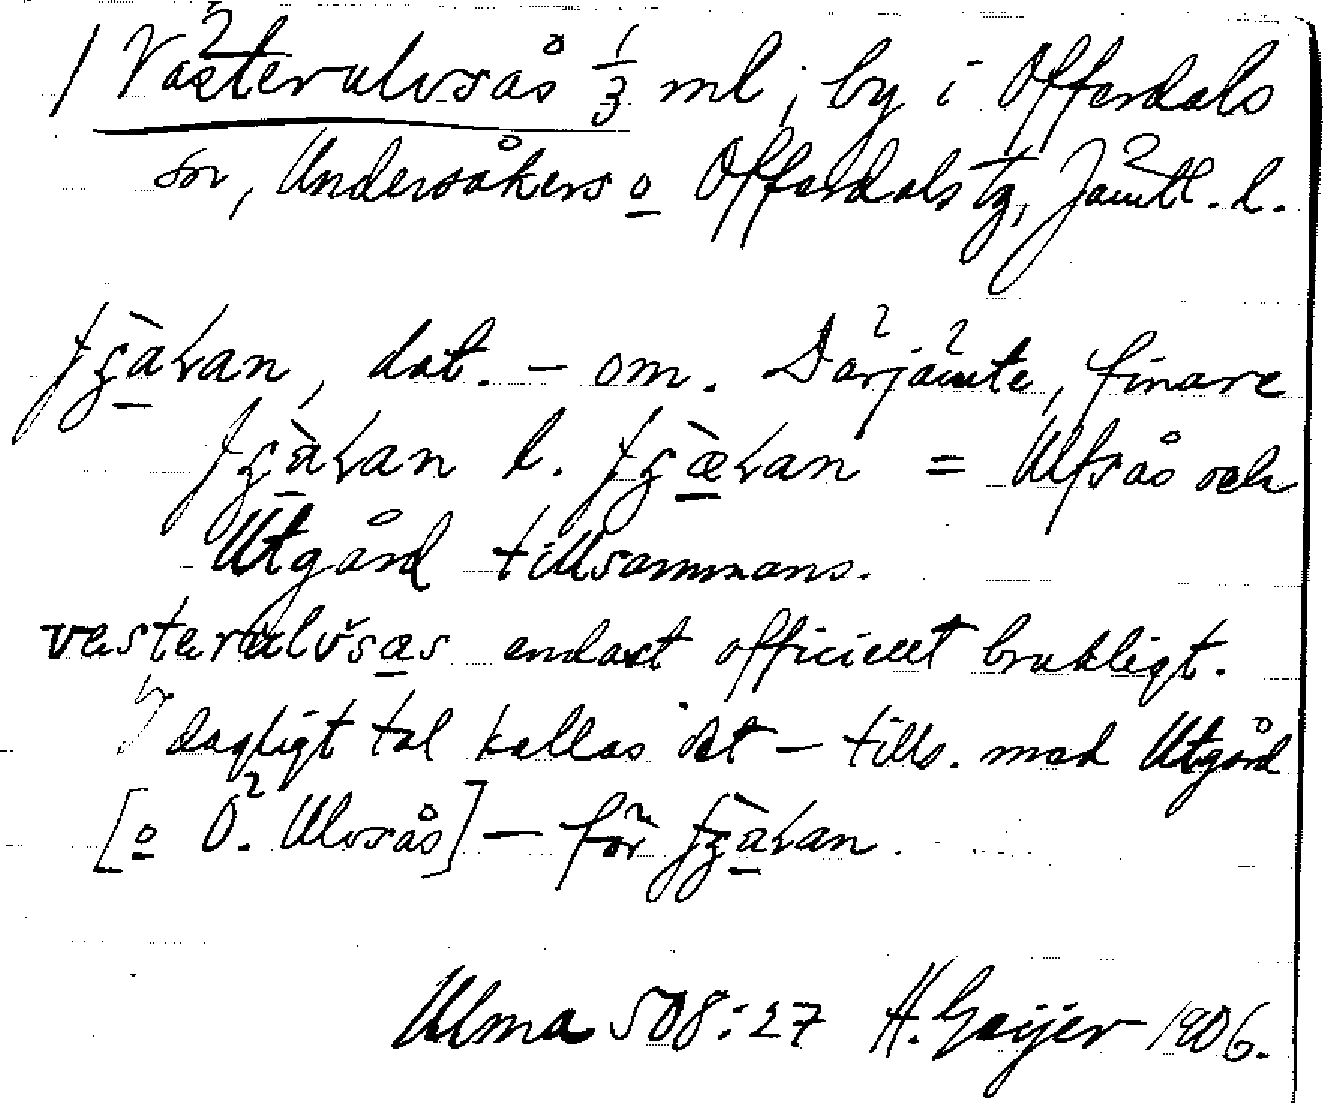 / Västerulvsås 1/3 ml, by i Offerdals
sn, Undersåkers o Offerdals tg, Jämtl. l.
dat. – om. Därjämte, finare
l. = Ulfsås och
Utgård tillsammans.
västerulvsæs endast officiellt brukligt.
I dagligt tal kallas det – tills. med Utgård
[o Ö. Ulvsås] – för
Ulma 508:27 H. Geijer 1906.